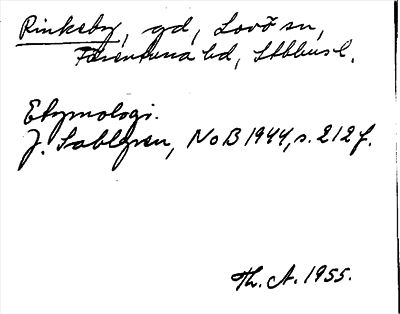 Rinkeby, gd, Lovö sn,
Färentuna hd, Sthlms l.
Etymologi.
J. Sahlgren, NoB 1944, s. 212 f.
Th. A. 1955.